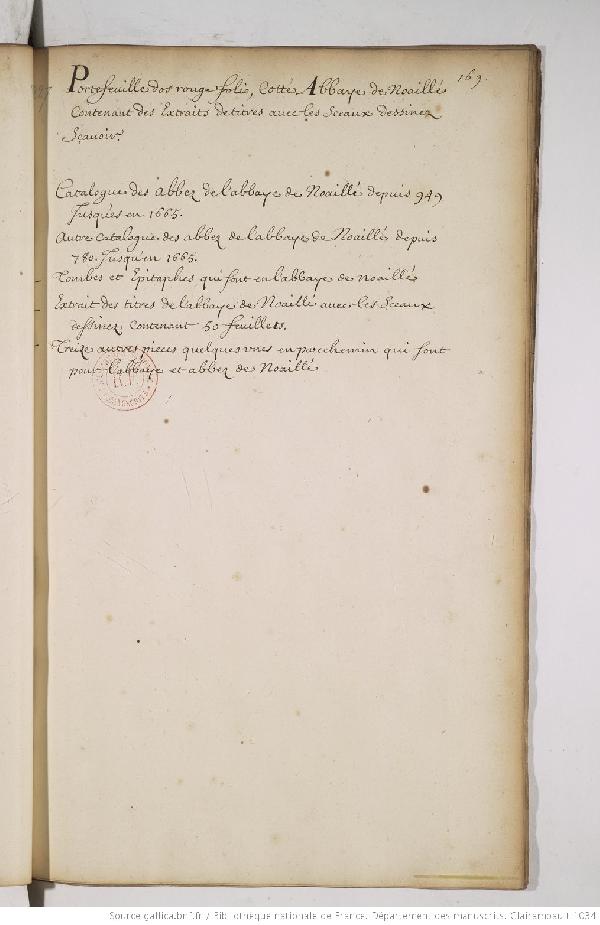 163.
Portefeuille dos rouge folio, Cotté Abbaye de Noaillé
Contenant des Extraits de titres avec les Sceaux dessinez
Sçavoir.
Catalogue des abbez de l'abbaye de Noaillé depuis 949
Jusques en 1665.
Autre Catalogue des abbez de l'abbaye de Noaillé depuis
780. Jusqu'en 1665.
Tombes et Epitaphes qui sont en l'abbaye de Noaillé
Extrait des titres de l'abbaye de Noaillé avec les Sceaux
dessinez Contenant 50 feuillets.
Treize autres pieces quelques unes en parchemin qui sont
pour l'abbaye et abbez de Noaillé
Source gallica.bnf.fr / Bibliothèque nationale de France. Département des manuscrits. Clairambault 1034